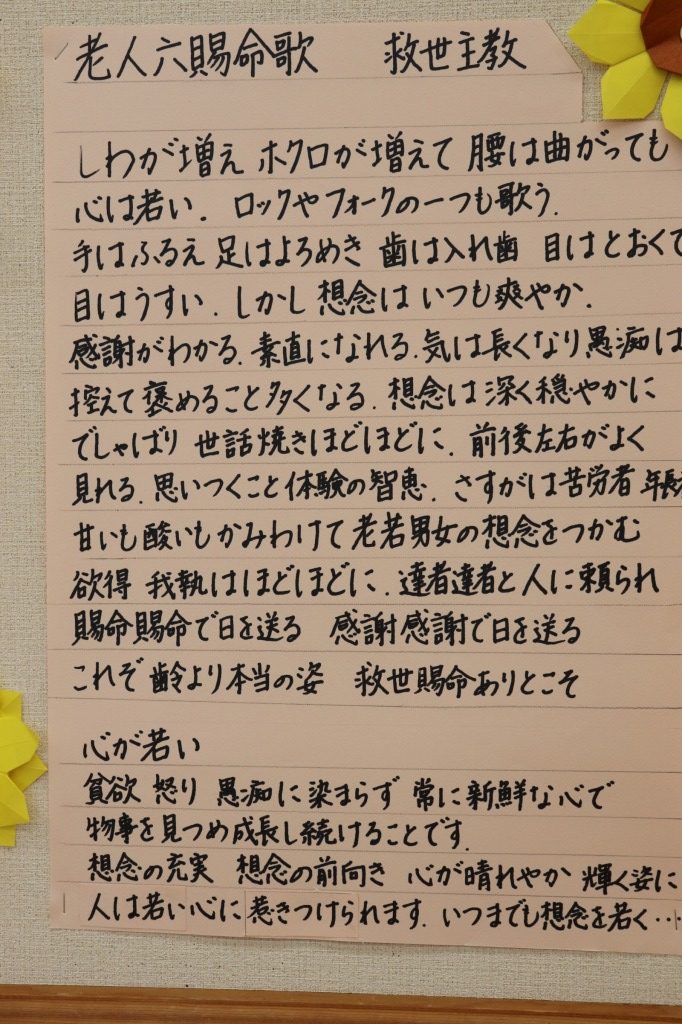 老人六賜命歌　　救世主教
しわが増え ホクロが増えて 腰は曲がっても
心は若い. ロックやフォークの一つも歌う.
手はふるえ 足はよろめき 歯は入れ歯 目はとおくて
目はうすい. しかし 想念は いつも爽やか.
感謝がわかる. 素直になれる. 気は長くなり 愚痴は
控えて 褒めること 多くなる. 想念は 深く穏やかに
でしゃばり 世話焼きほどほどに. 前後左右がよく
見れる. 思いつくこと 体験の智恵. さすがは苦労者 年長
甘いも酸いもかみわけて 老若男女の想念をつかむ
欲得 我執はほどほどに. 達者達者と 人に頼られ
賜命賜命で日を送る 感謝感謝で日を送る
これぞ 齢より本当の姿 救世賜命ありとこそ
心が若い
貧欲 怒り 愚痴に染まらず 常に新鮮な心で
物事を見つめ成長し続けることです.
想念の充実 想念の前向き 心が晴れやか 輝く姿に
人は若い心に惹きつけられます. いつまでも想念を若く…